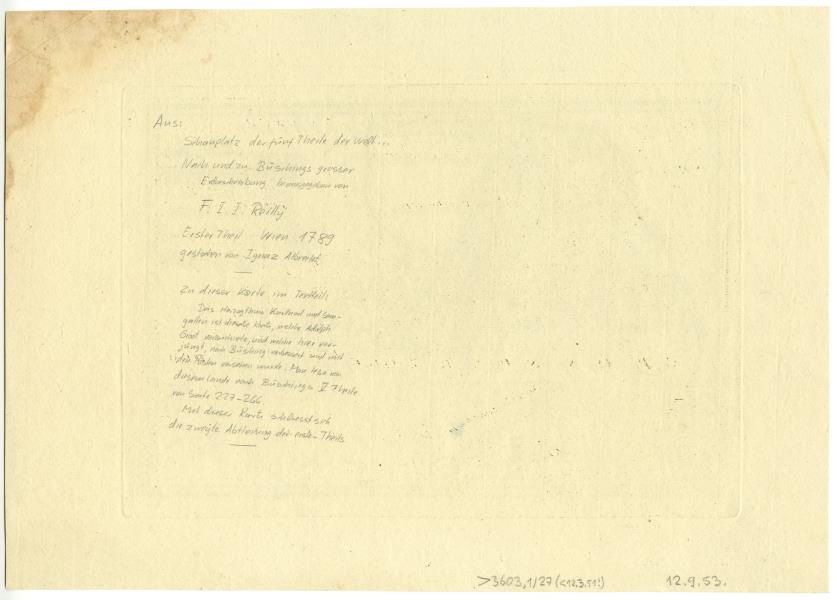 Aus:
Schauplatz der fünf Theile der Welt...
Nach und zu Büschings grosser
Erdbeschreibung herausgegeben von
F. I. I. Reilly
Erster Theil Wien 1789
gestochen von Ignaz Albrecht
Zu dieser Karte im Textteil:
Das Herzogthum Kurland und Sem-
gallen ist dieselbe Karte, welche Adolph
Groot verzeichnete, und welche hier ver-
jüngt, nach Büsching verbessert und mit
den Posten versehen wurde. Man lese von
diesem Lande nach Büschings V Theile
von Seite 227-266.
Mit dieser Karte schliesst sich
die zweyte Abtheilung des ersten Theils
>3603,1/27 (<12.3.51!)
12.9.53.